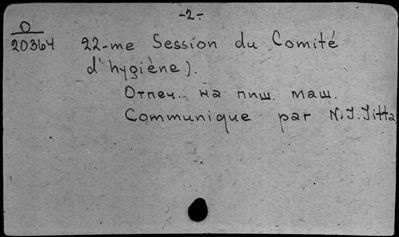 -2-
O
20364
22-me Session du Comité
d'hygiène).
Отпеч. на пиш. маш.
Communique par N.J.Jitta